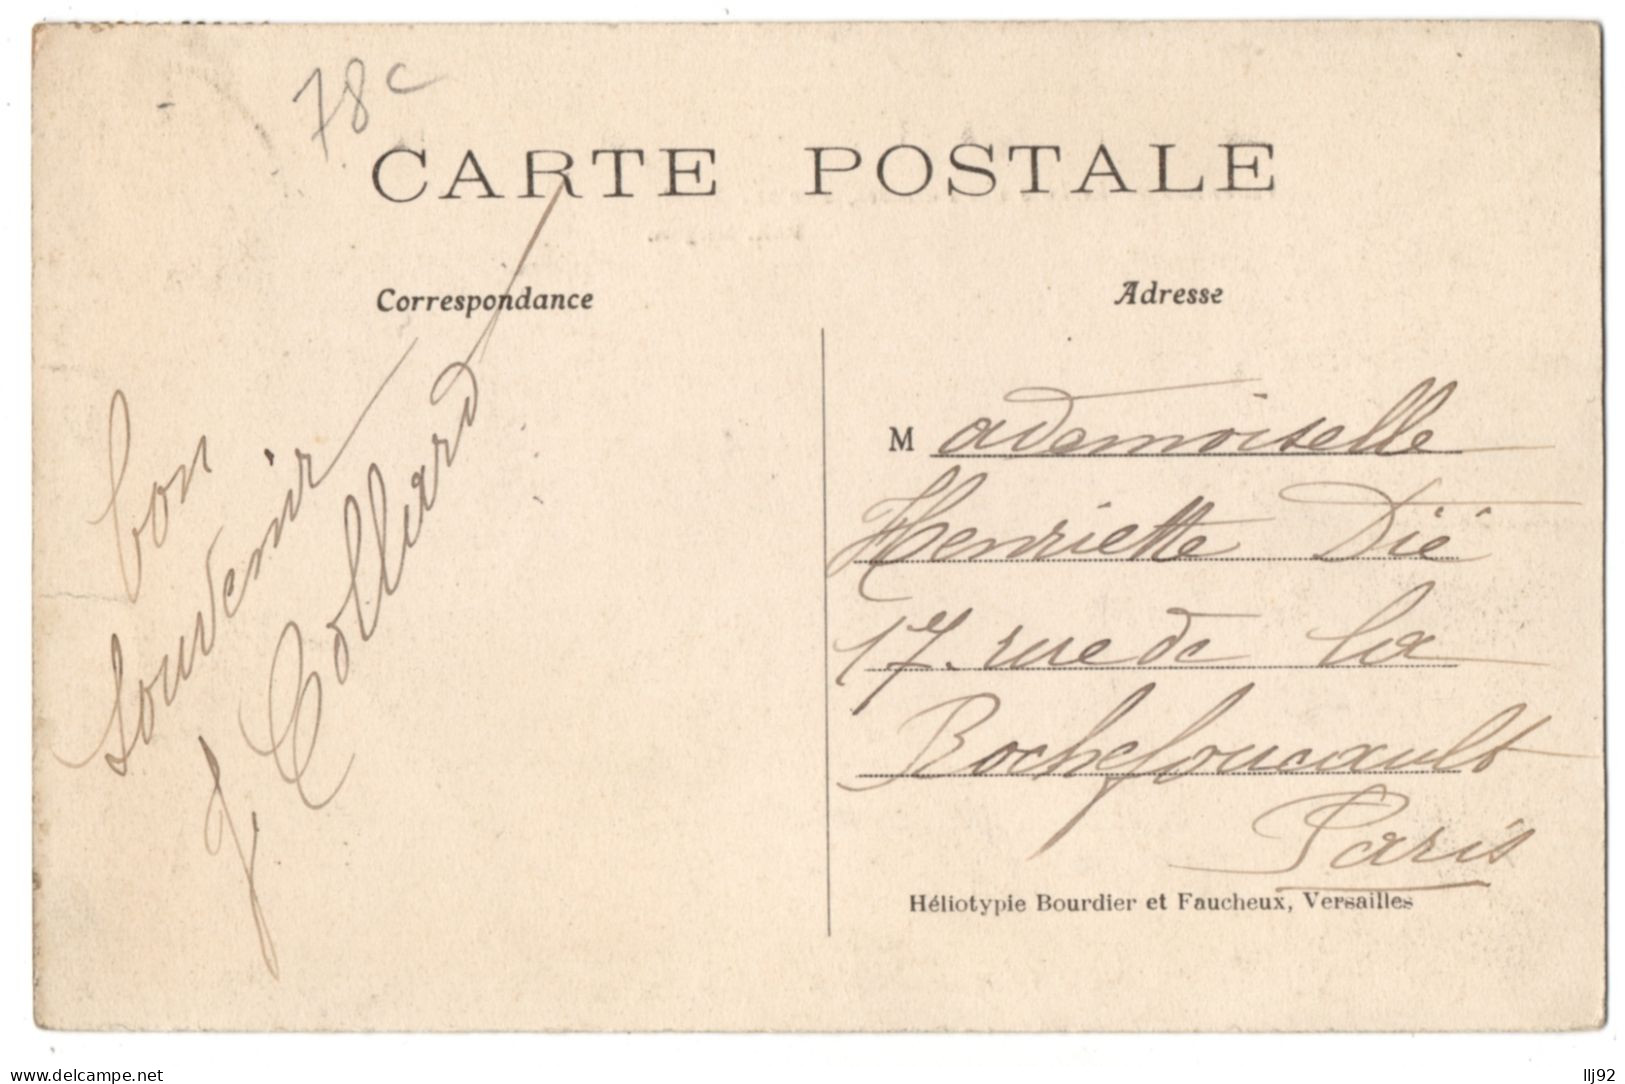 78c
CARTE POSTALE
Correspondance
Adresse
bon
souvenir
J. Colliard
Mademoiselle
Henriette Dïé
17. rue de la
Rochefoucault
Paris
Héliotypie Bourdier et Faucheux, Versailles
www.delcampe.net
llj92